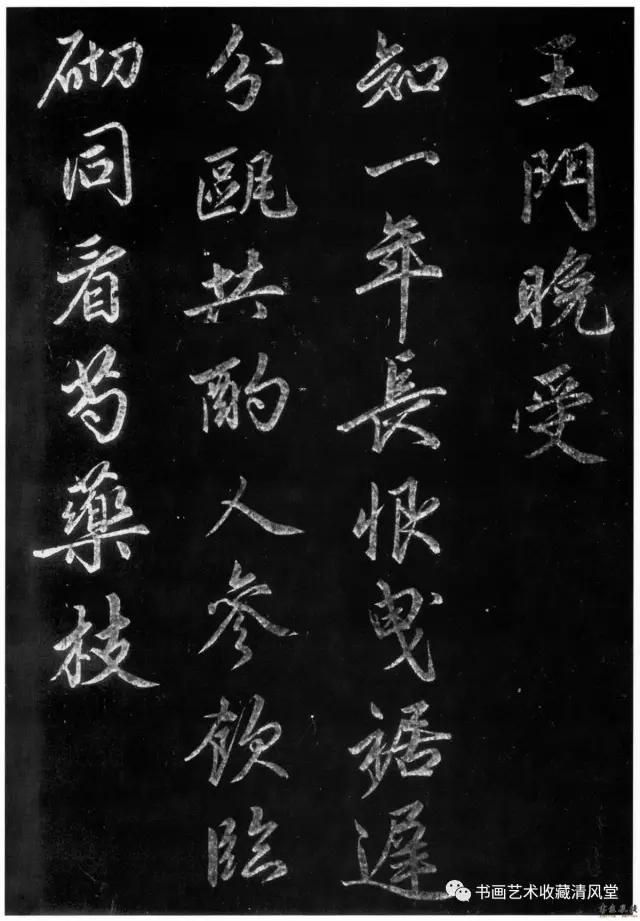 王門晚受
知一年長恨曳裾遲
分甌共酌人參飲臨
砌同看芍藥枝
书画艺术收藏清风堂